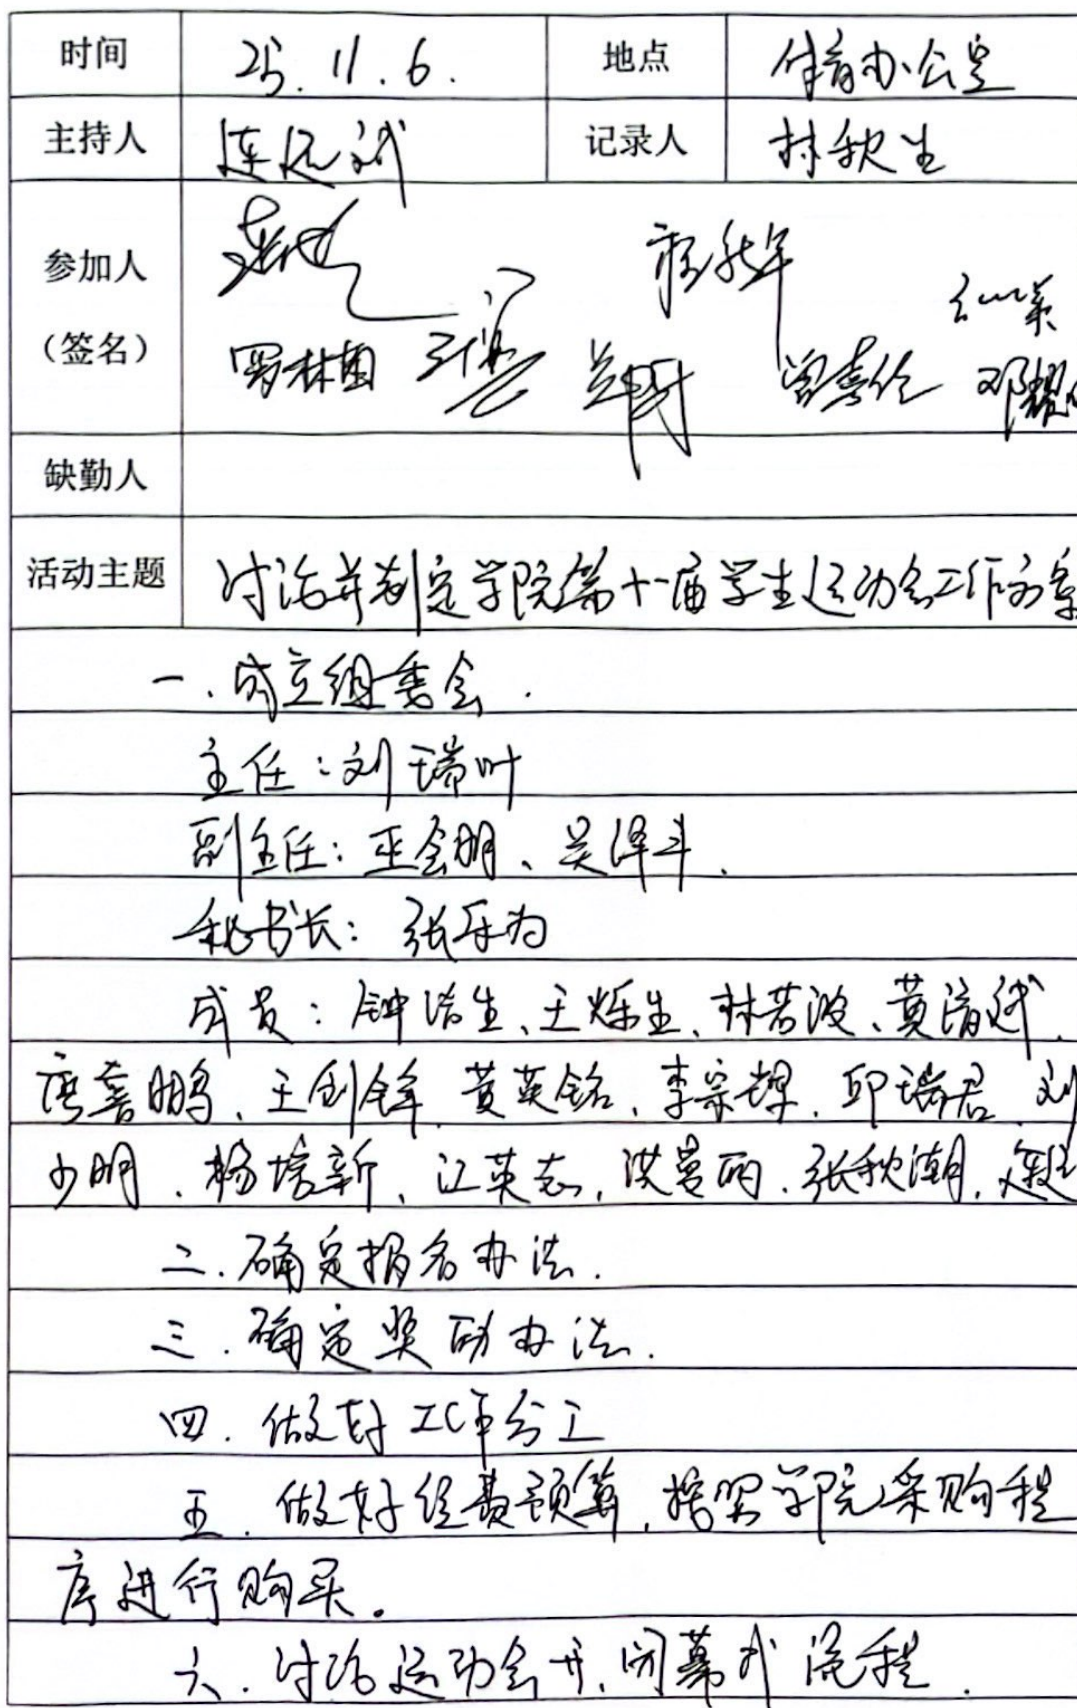 时间 25.11.6. 地点 体育办公室
主持人 连远斌 记录人 林秋生
参加人
(签名)
罗林茵 曾喜伦 邓耀
缺勤人
活动主题 讨论并制定学院第十一届学生运动会工作方案
一.成立组委会.
主任:刘瑞叶
副主任:巫金明、吴泽斗.
秘书长:张乐为
成员:钟浩生、王烁生、林若波、黄清斌、
唐喜鹏、王剑锋、黄英铭、李宗辉、邱瑞君、刘
少明、杨培新、江英志、洪曼丽、张秋潮、
二.确定报名办法.
三.确定奖励办法.
四.做好工作分工
五.做好经费预算,按照学院采购程
序进行购买。
六.讨论运动会开、闭幕式流程.